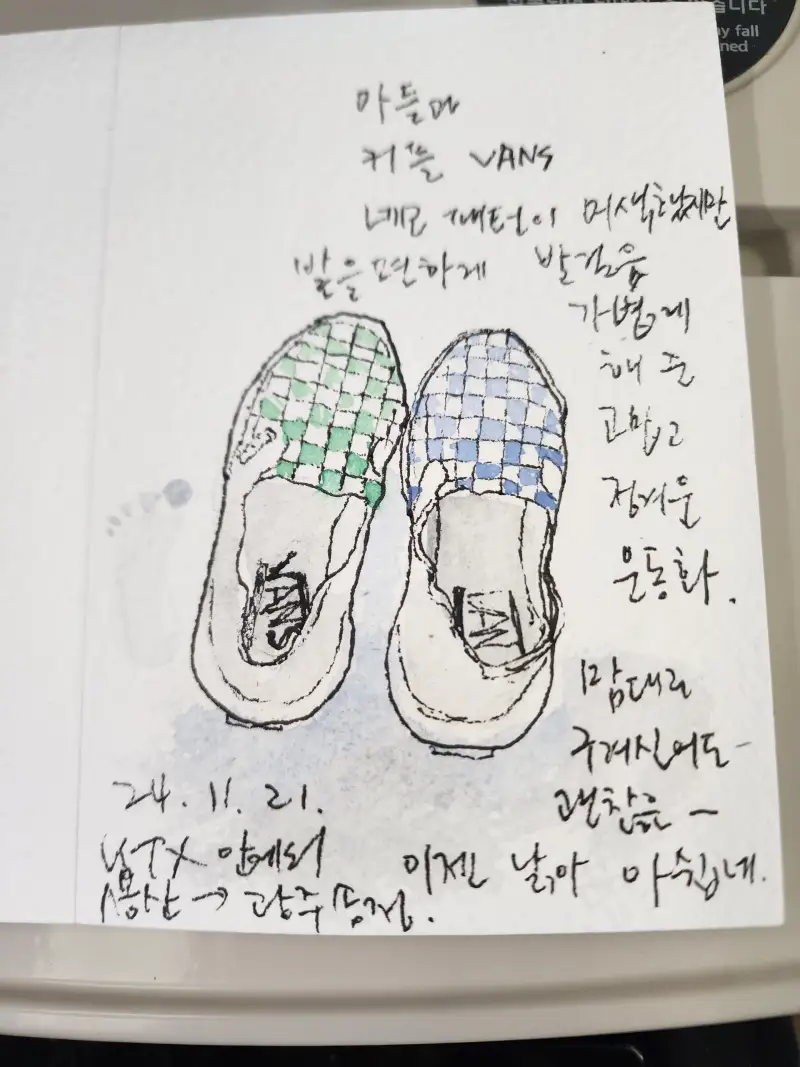 습니다
ay fall
ned
아들과
커플 VANS
네모 패턴이
발을 편하게 발걸음
가볍게
해 준
고맙고
정겨운
운동화.
VANS
VAN
맘대로
구겨신어도-
괜찮은 ~
이젠 낡아 아쉽네.
24. 11. 21.
KTX 안에서
용산 → 광주송정.